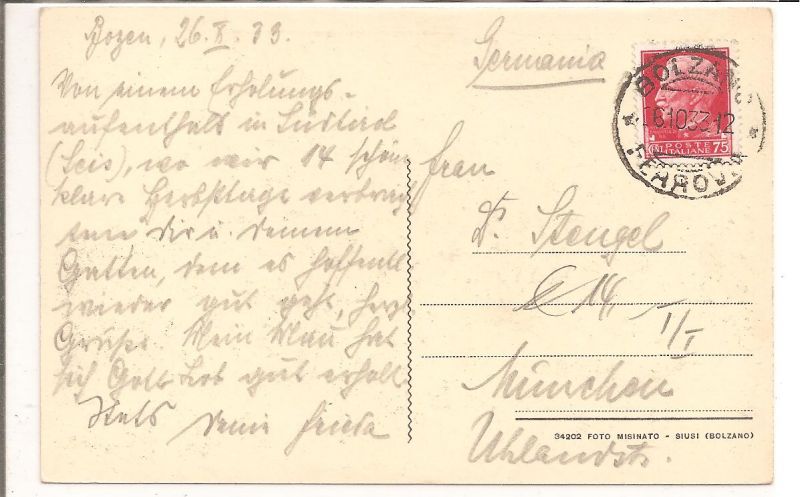 Bozen, 26.X.33.
Von einem Erholungs-
aufenthalt in Südtirol
(Seis), wo wir 14 schöne
klare Herbsttage verbrach
ten Dir u. Deinem
Gatten, dem es hoffentl.
wieder gut geht, herzl.
Grüße. Mein Mann hat
sich Gott Lob gut erholt.
Stets Deine Frieda
Germania
BOLZANO
26.10.33.12
FERROVIA
POSTE
ITALIANE 75
Frau
Dr. Stengel
14
I/I
München
Uhlandstr.
34202 FOTO MISINATO - SIUSI (BOLZANO)